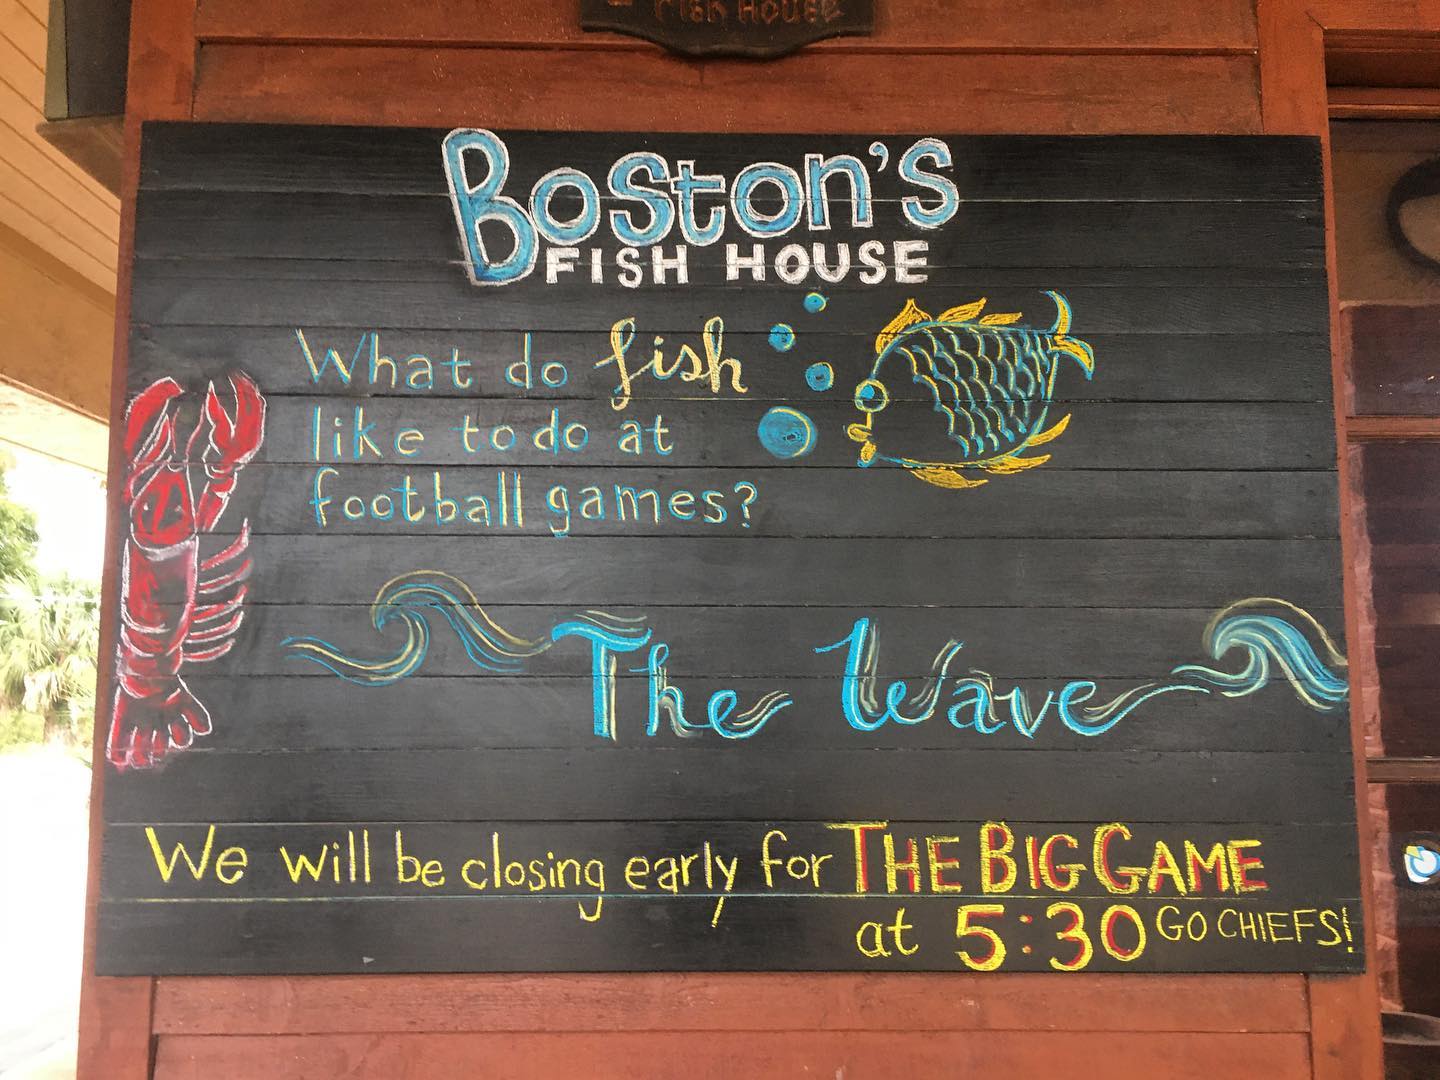 FISH HOUSE
Boston's
FISH HOUSE
What do fish
like to do at
football games?
The Wave
We will be closing early for THE BIG GAME
at 5:30 GO CHIEFS!